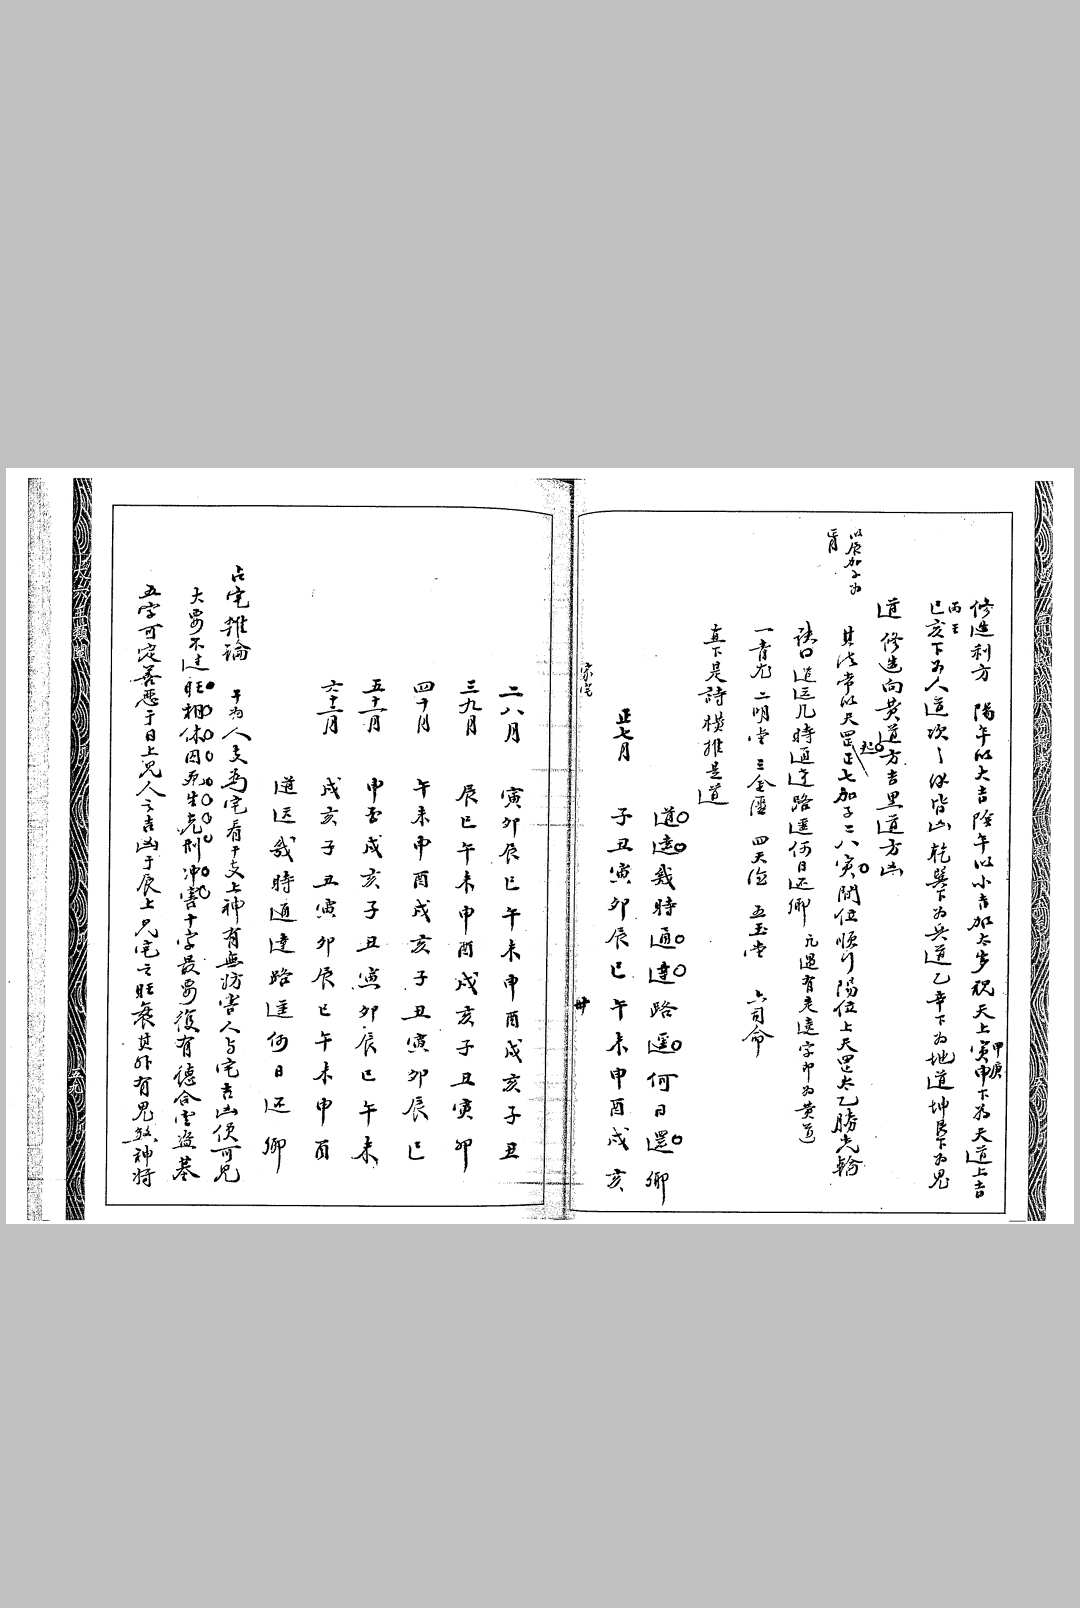 修造利方　陽年以大吉陰年以小吉加太岁視天上寅申甲庚下為天道上吉
巳亥丙壬下为人道次之餘皆凶乾巽下为兵道乙辛下为地道坤艮下为鬼
道　修造向黄道方吉黑道方凶
以辰加子为正月
其法常以天罡正七加子二八寅间位順行陽位上天罡太乙勝光
訣曰道远几時通达路遥何日还鄉　凡遇有走遠字即为黄道
一青龙　二明堂　三金匮　四天德　五玉堂　六司命
直下是詩横推是道
道遠幾時通達路遥何日還鄉
正七月　子丑寅卯辰巳午未申酉戌亥
家宅
廿
二八月　寅卯辰巳午未申酉戌亥子丑
三九月　辰巳午未申酉戌亥子丑寅卯
四十月　午未申酉戌亥子丑寅卯辰巳
五十一月　申酉戌亥子丑寅卯辰巳午未
六十二月　戌亥子丑寅卯辰巳午未申酉
道远幾時通達路遥何日还鄉
占宅雜論　干为人支为宅看干支上神有無妨害人与宅吉凶便可見
大要不过旺相休囚死生克刑冲害十字最要復有德合空盗墓
五字可定善恶于日上見人之吉凶于辰上見宅之旺衰其外有鬼煞神将